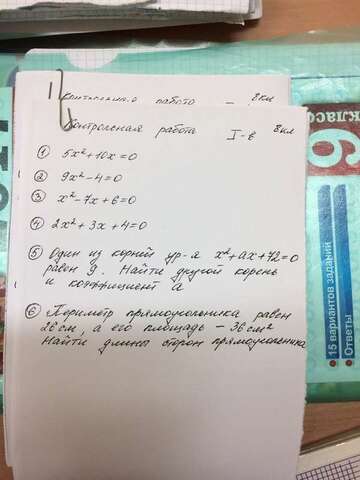 Контрольная работа – 8 кл
Контрольная работа I-в 8 кл
① 5x²+10x=0
② 9x²-4=0
③ x²-7x+6=0
④ 2x²+3x+4=0
⑤ Один из корний ур-я x²+ax+72=0
равен 9. Найти другой корень
и коэффициент a
⑥ Периметр прямоугольника равен
26 см, а его площадь – 36 см²
Найти длины сторон прямоугольника
класс
6
15 вариантов заданий
Ответы